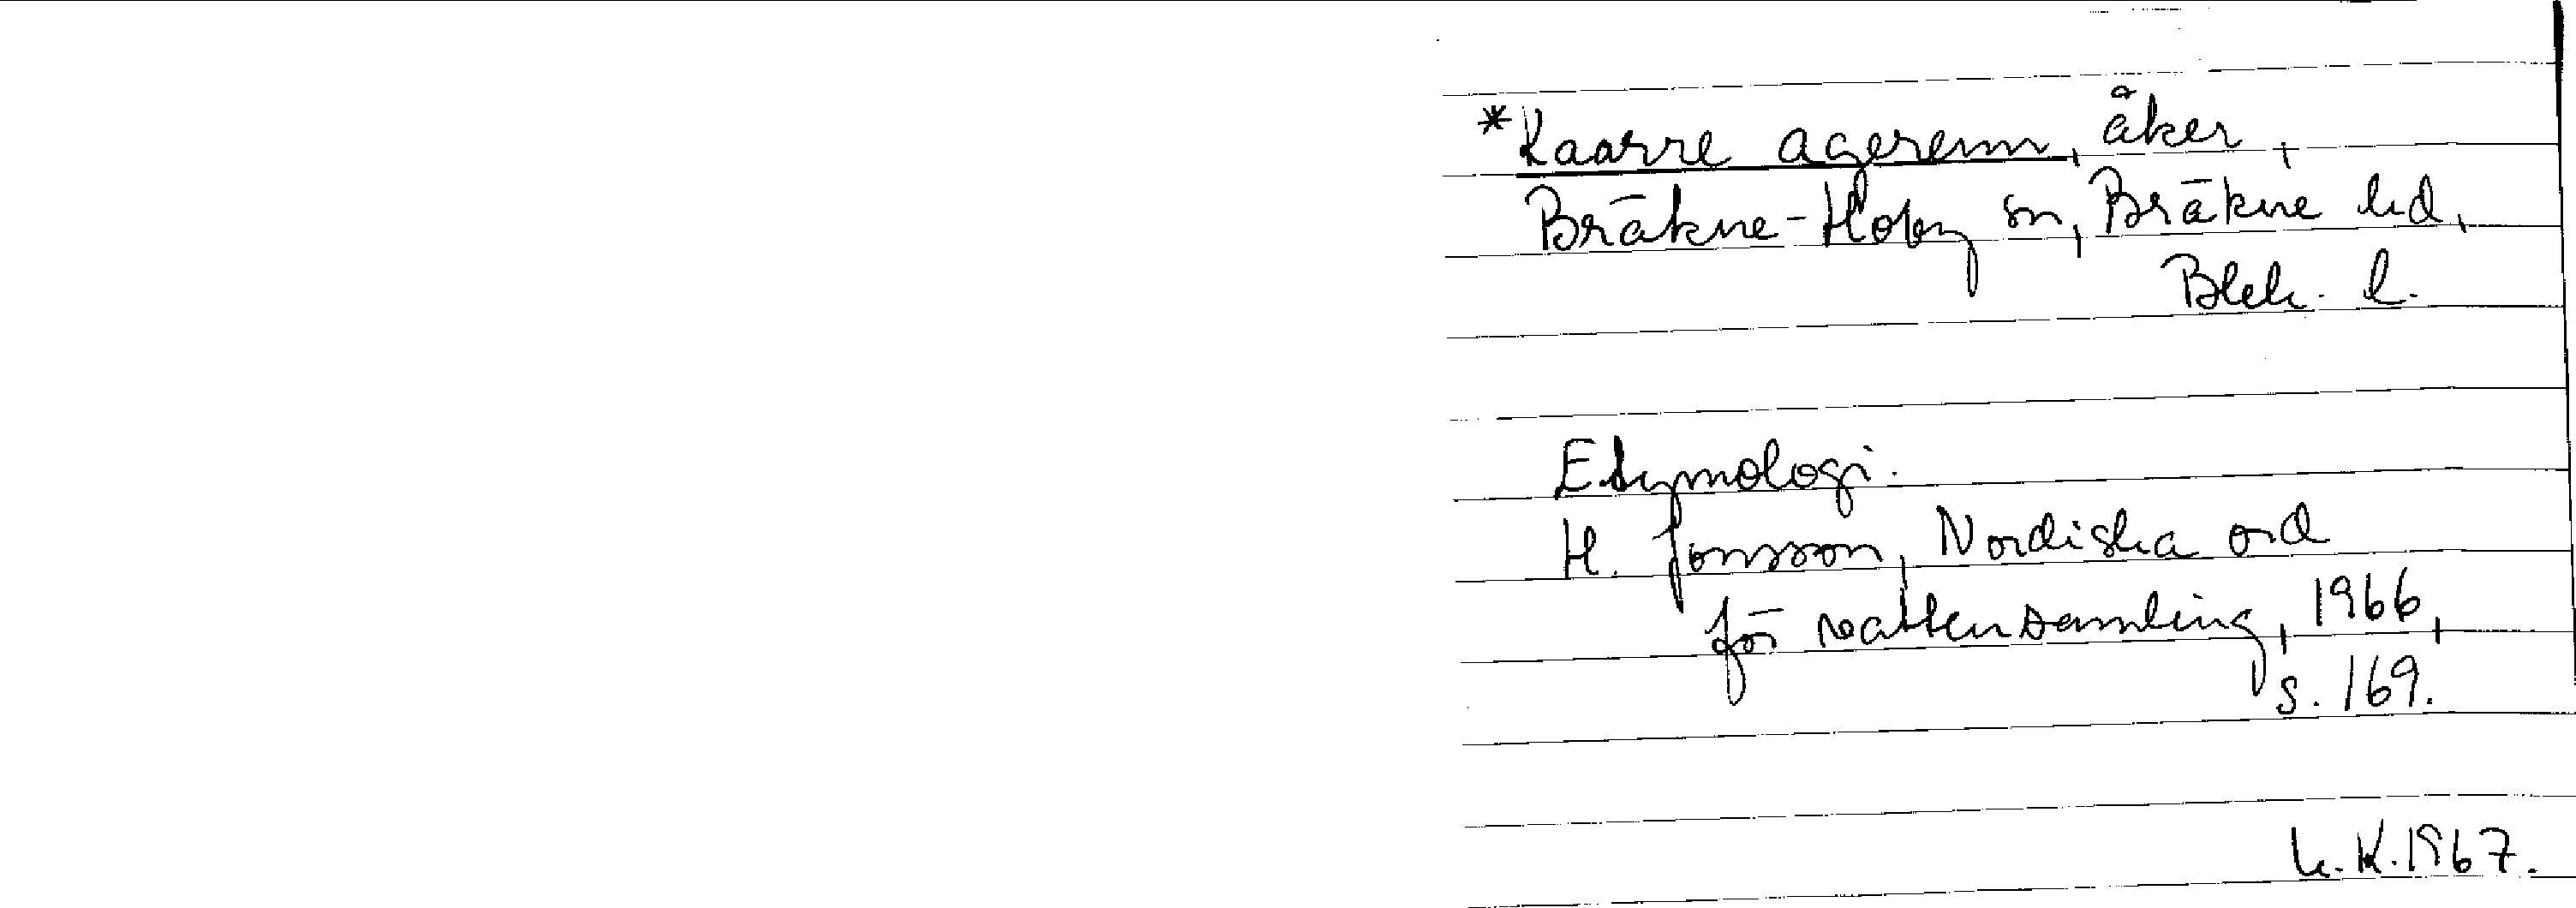 *Kaarre agerenn, åker,
Bräkne-Hoby sn, Bräkne hd,
Blek. l.
Etymologi.
H. Jonsson, Nordiska ord
för vattensamling, 1966,
s. 169.
K.1967.